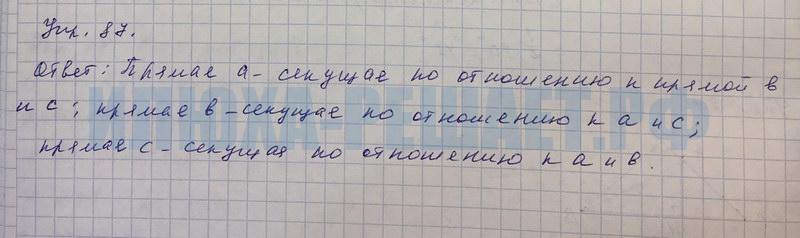 Упр. 87.
Ответ: Прямая а - секущая по отношению к прямой в
и с; прямая в - секущая по отношению к а и с;
прямая с - секущая по отношению к а и в.